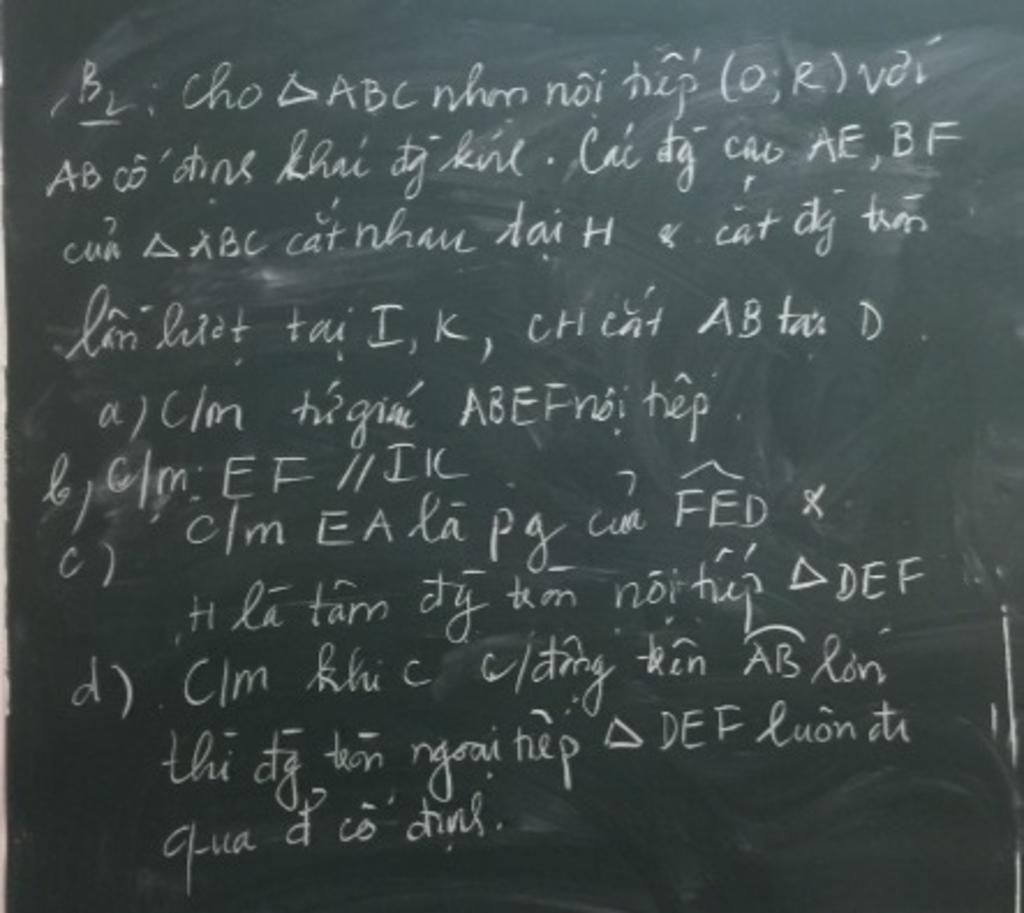 B2: Cho △ABC nhọn nội tiếp (O; R) với
AB cố định khác đg kính. Các đg cao AE, BF
của △ABC cắt nhau tại H & cắt đg tròn
lần lượt tại I, K, CH cắt AB tại D.
a) C/m tứ giác ABEF nội tiếp.
b, C/m: EF // IK
c) C/m EA là pg của FED &
H là tâm đg tròn nội tiếp △DEF
d) C/m khi C c/động trên AB lớn
thì đg tròn ngoại tiếp △DEF luôn đi
qua đ' cố định.